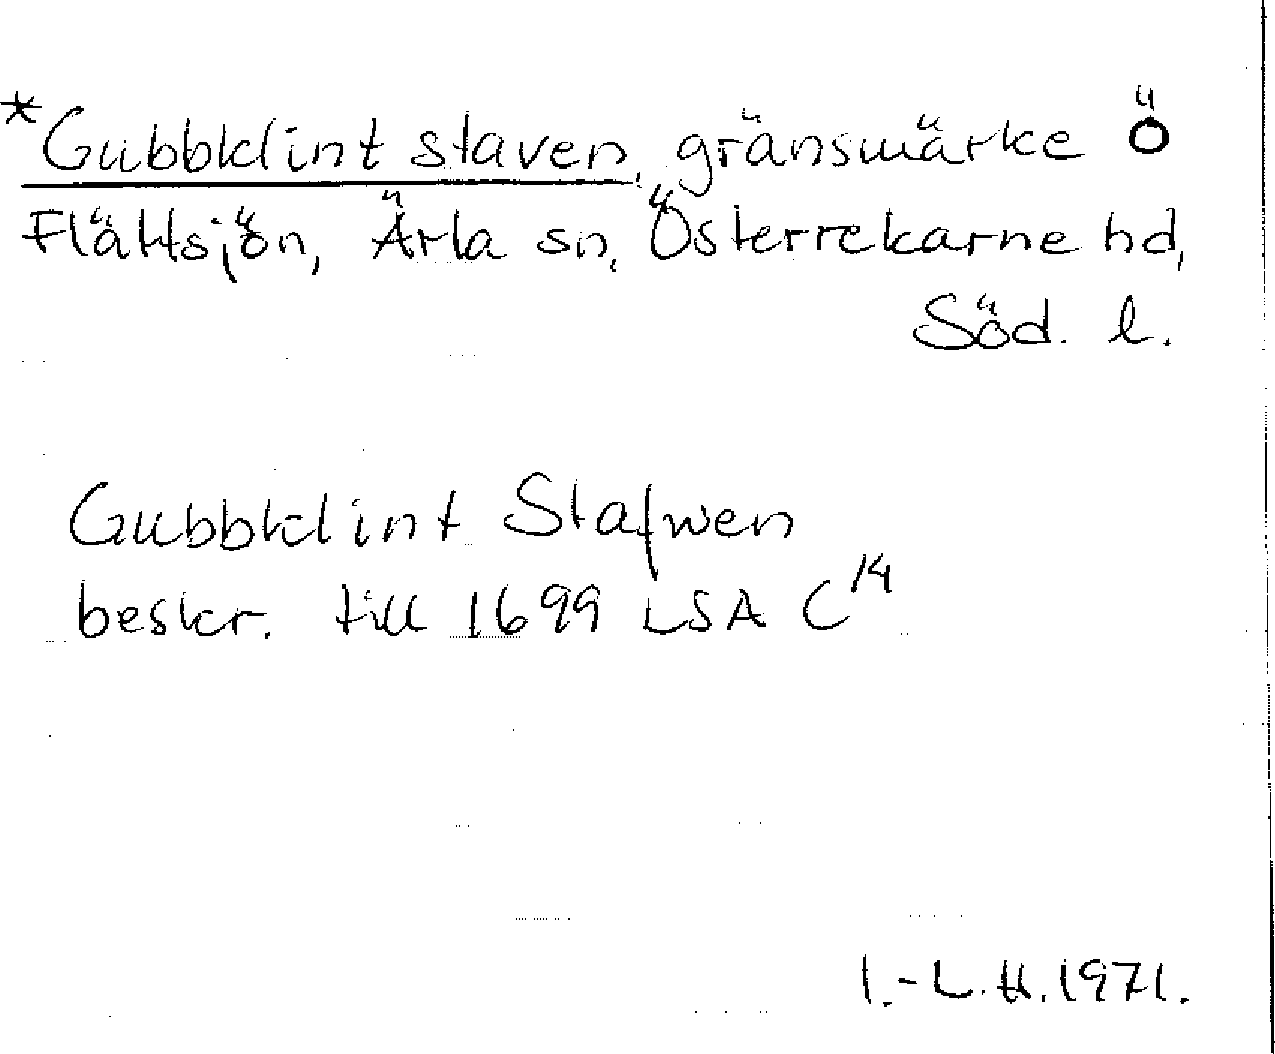 *Gubbklint staven, gränsmärke Ö
Flättsjön, Ärla sn, Österrekarne hd,
Söd. l.
Gubbklint Stafwen
beskr. till 1699 LSA C14
I.-L.H.1971.